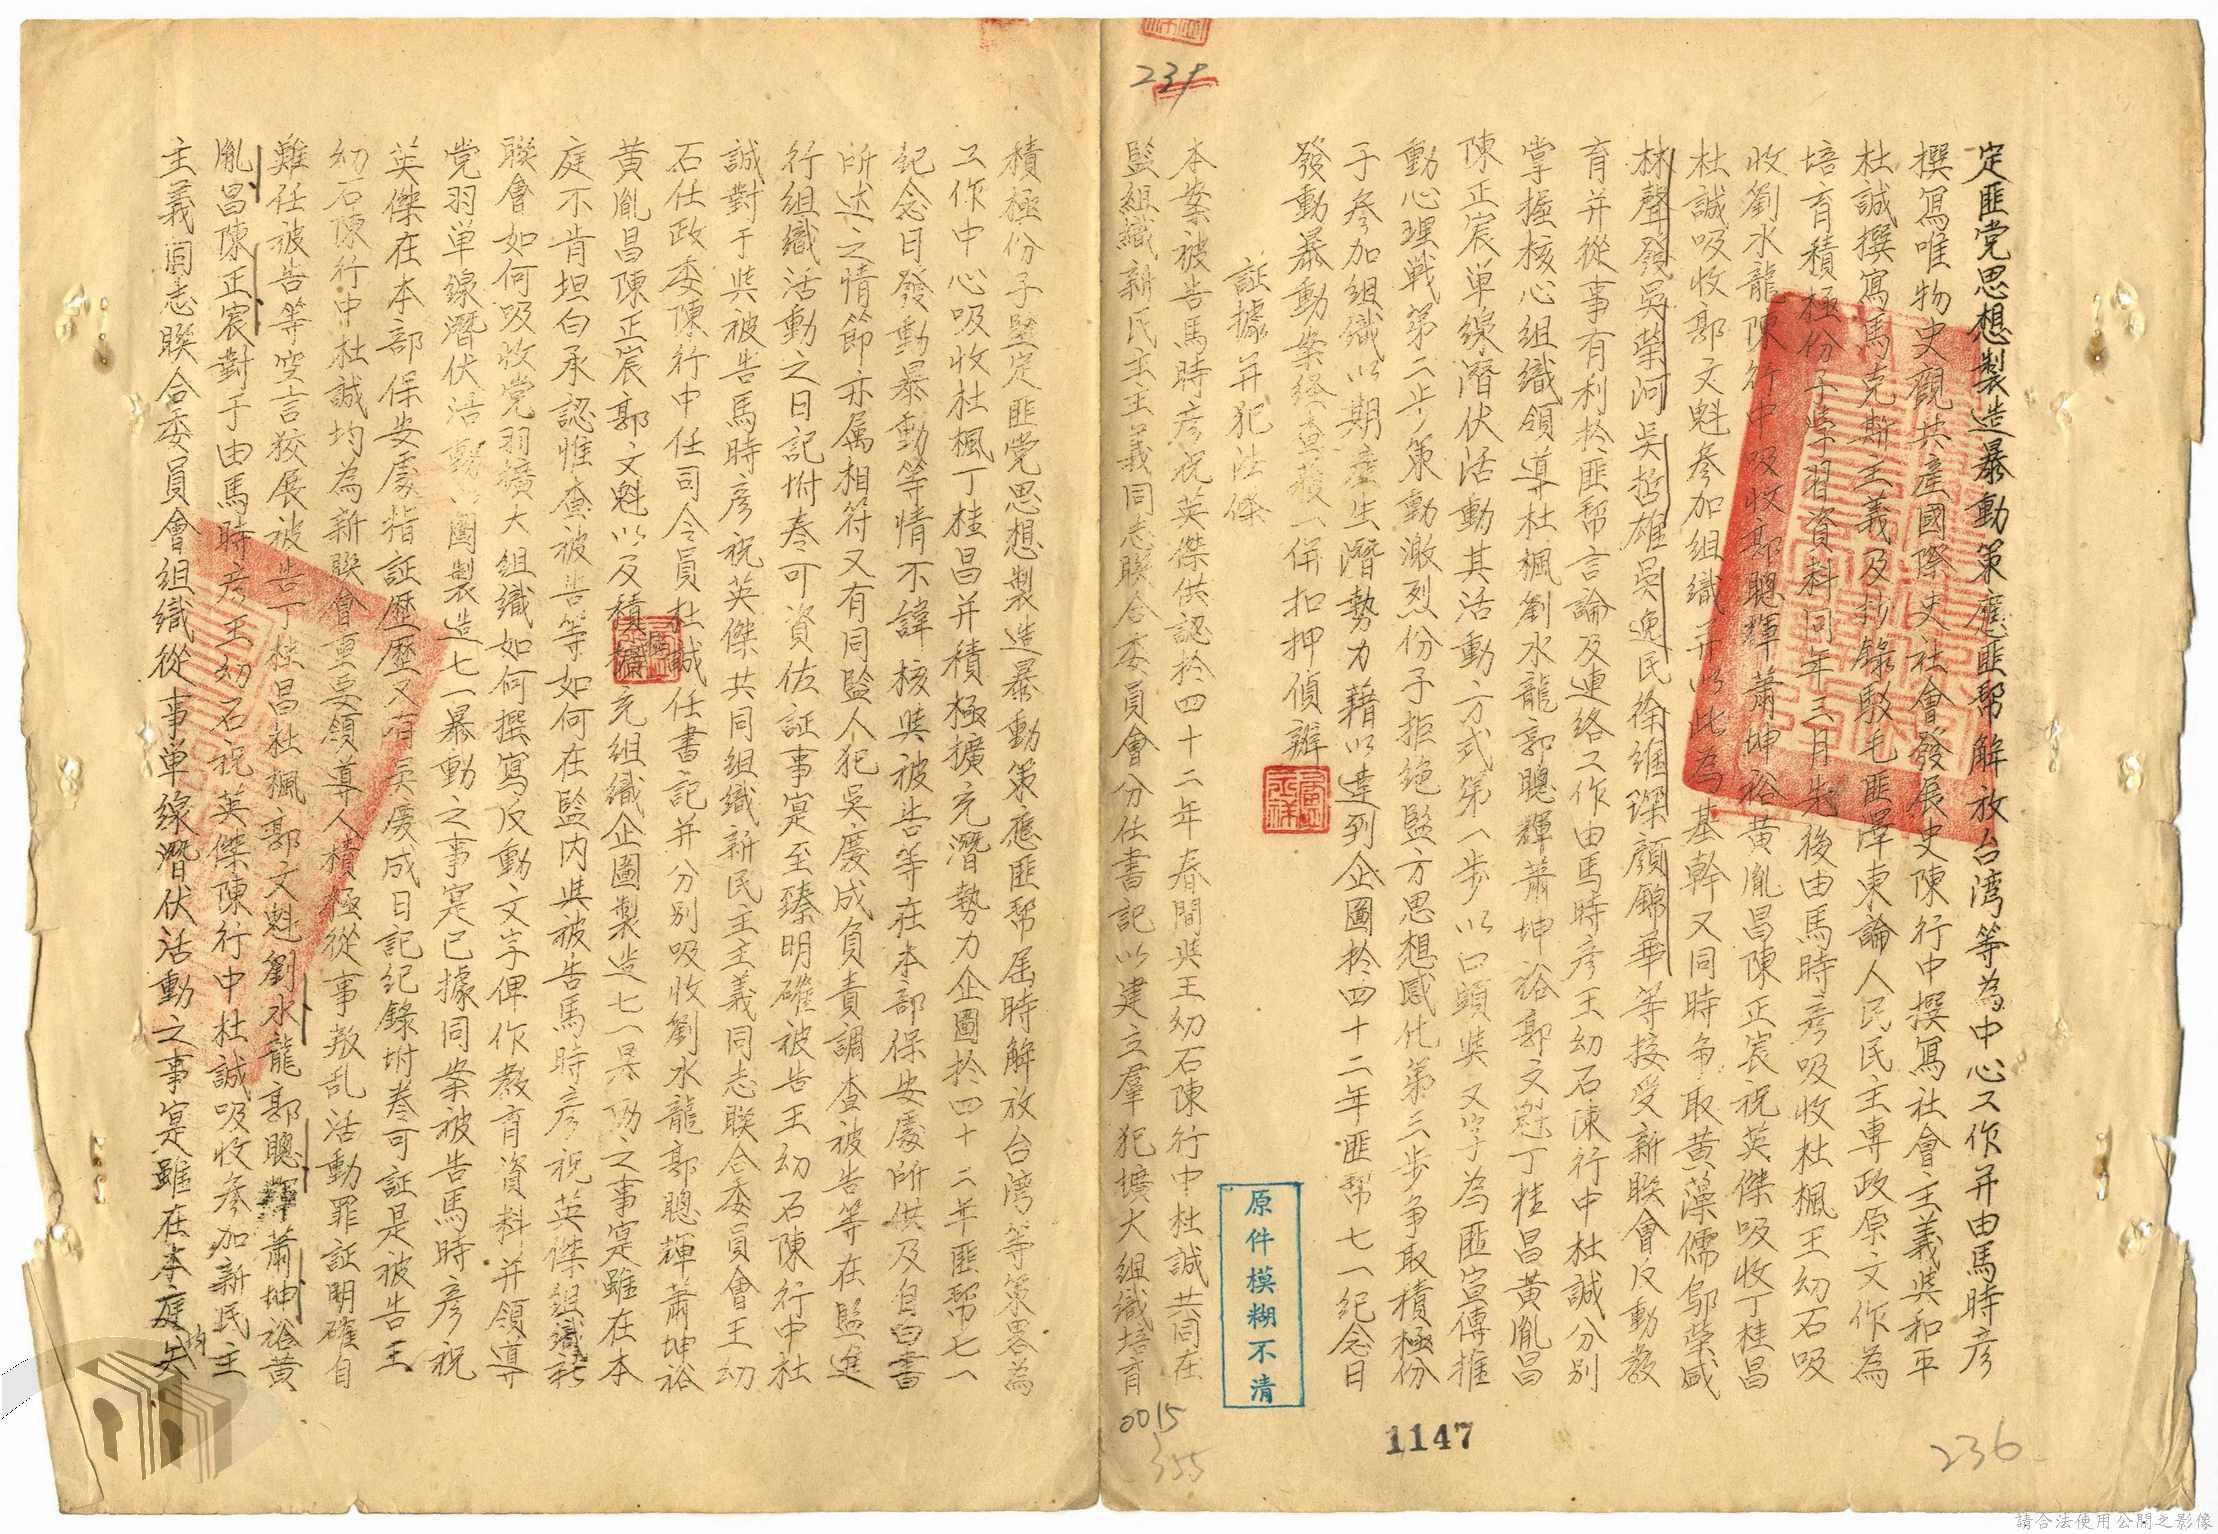 定匪党思想製造暴動策應匪幫解放台湾等為中心工作并由馬時彥
撰寫唯物史觀共產國際史社會發展史陳行中撰寫社會主義與和平
杜誠撰寫馬克斯主義及抄錄駁毛匪澤東論人民民主專政原文作為
培育積極份子學習資料同年三月先後由馬時彥吸收杜楓王幼石吸
收劉水龍陳行中吸收郭聰輝蕭坤裕黃胤昌陳正宸祝英傑吸收丁桂昌
杜誠吸收郭文魁參加組織并以此為基幹又同時争取黃藻儒鄔榮盛
林聲發吳榮河吳哲雄吳逸民徐維琛顏錦華等接受新聯會反動教
育并從事有利於匪幫言論及連絡工作由馬時彥王幼石陳行中杜誠分別
掌握核心組織領導杜楓劉水龍郭聰輝蕭坤裕郭文魁丁桂昌黃胤昌
陳正宸单線潛伏活動其活動方式第一步以口頭與文字為匪宣傳推
動心理戰第二步策動激烈份子拒絶監方思想感化第三步争取積極份
子參加組織以期產生潛勢力藉以達到企圖於四十二年匪幫七一紀念日
發動暴動案経查獲一併扣押偵辦
証據并犯法條
本案被告馬時彥祝英傑供認於四十二年春間與王幼石陳行中杜誠共同在
監組織新民主主義同志聯合委員會分任書記以建立羣犯擴大組織培育
積極份子堅定匪党思想製造暴動策應匪幫屆時解放台湾等策畧為
工作中心吸收杜楓丁桂昌并積極擴充潛勢力企圖於四十二年匪幫七一
紀念日發動暴動等情不諱核與被告等在本部保安處所供及自白書
所述之情節亦属相符又有同監人犯吳慶成負責調查被告等在監進
行組織活動之日記附卷可資佐証事寔至臻明確被告王幼石陳行中杜
誠對于與被告馬時彥祝英傑共同組織新民主主義同志聯合委員會王幼
石任政委陳行中任司令員杜誠任書記并分別吸收劉水龍郭聰輝蕭坤裕
黃胤昌陳正宸郭文魁以及積擴充組織企圖製造七一暴動之事寔雖在本
庭不肯坦白承認惟查被告等如何在監内與被告馬時彥祝英傑組織新
聯會如何吸收党羽擴大組織如何撰寫反動文字俾作教育資料并領導
党羽单線潛伏活動以圖製造七一暴動之事寔已據同案被告馬時彥祝
英傑在本部保安處指証歷歷又有吳慶成日記紀錄附卷可証是被告王
幼石陳行中杜誠均為新聯會重要領導人積極從事叛乱活動罪証明確自
難任被告等空言狡展被告丁桂昌杜楓郭文魁劉水龍郭聰輝蕭坤裕黃
胤昌陳正宸對于由馬時彥王幼石祝英傑陳行中杜誠吸收參加新民主
主義同志聯合委員會組織從事单線潛伏活動之事寔雖在本庭均矢
237
236
0015
355
1147
原件模糊不清
請合法使用公開之影像